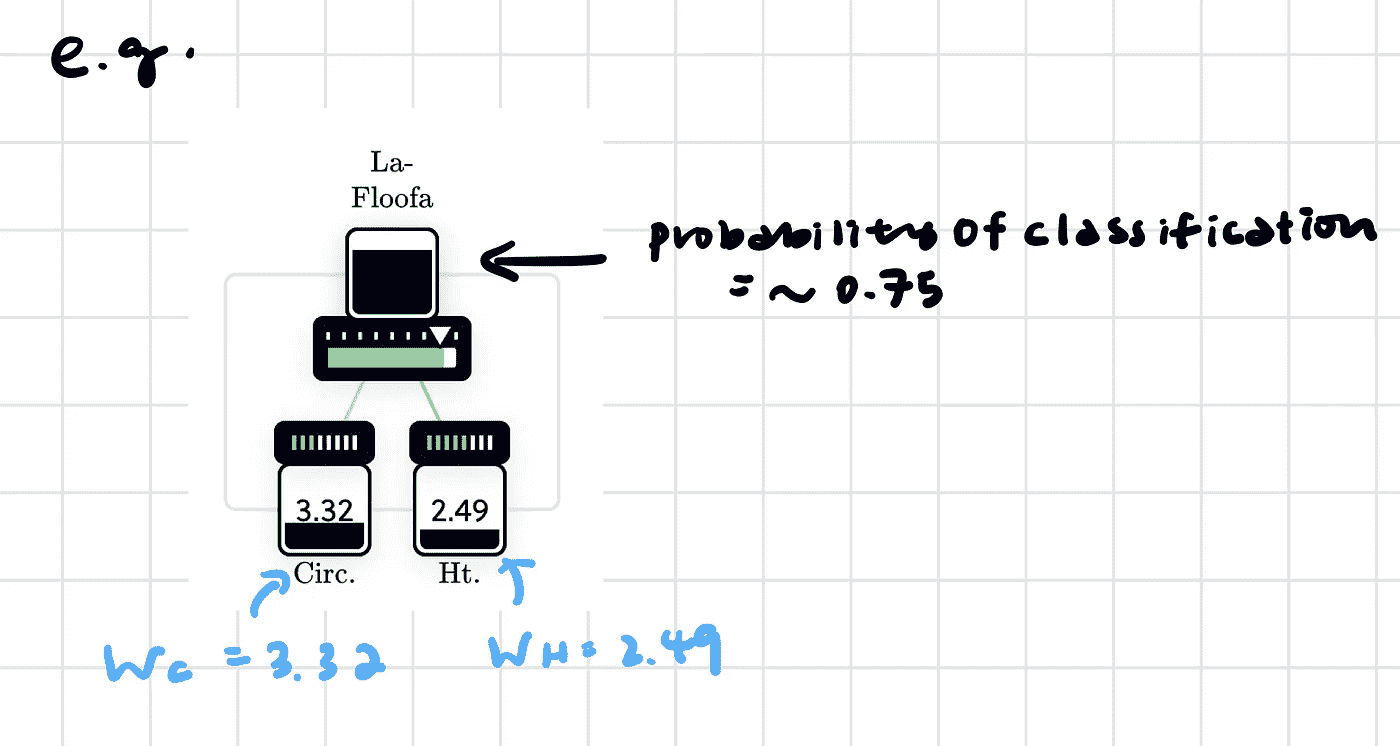 e.g.
La-
Floofa
probability of classification
= ~ 0.75
3.32
2.49
Circ.
Ht.
Wc = 3.32
WH = 2.49